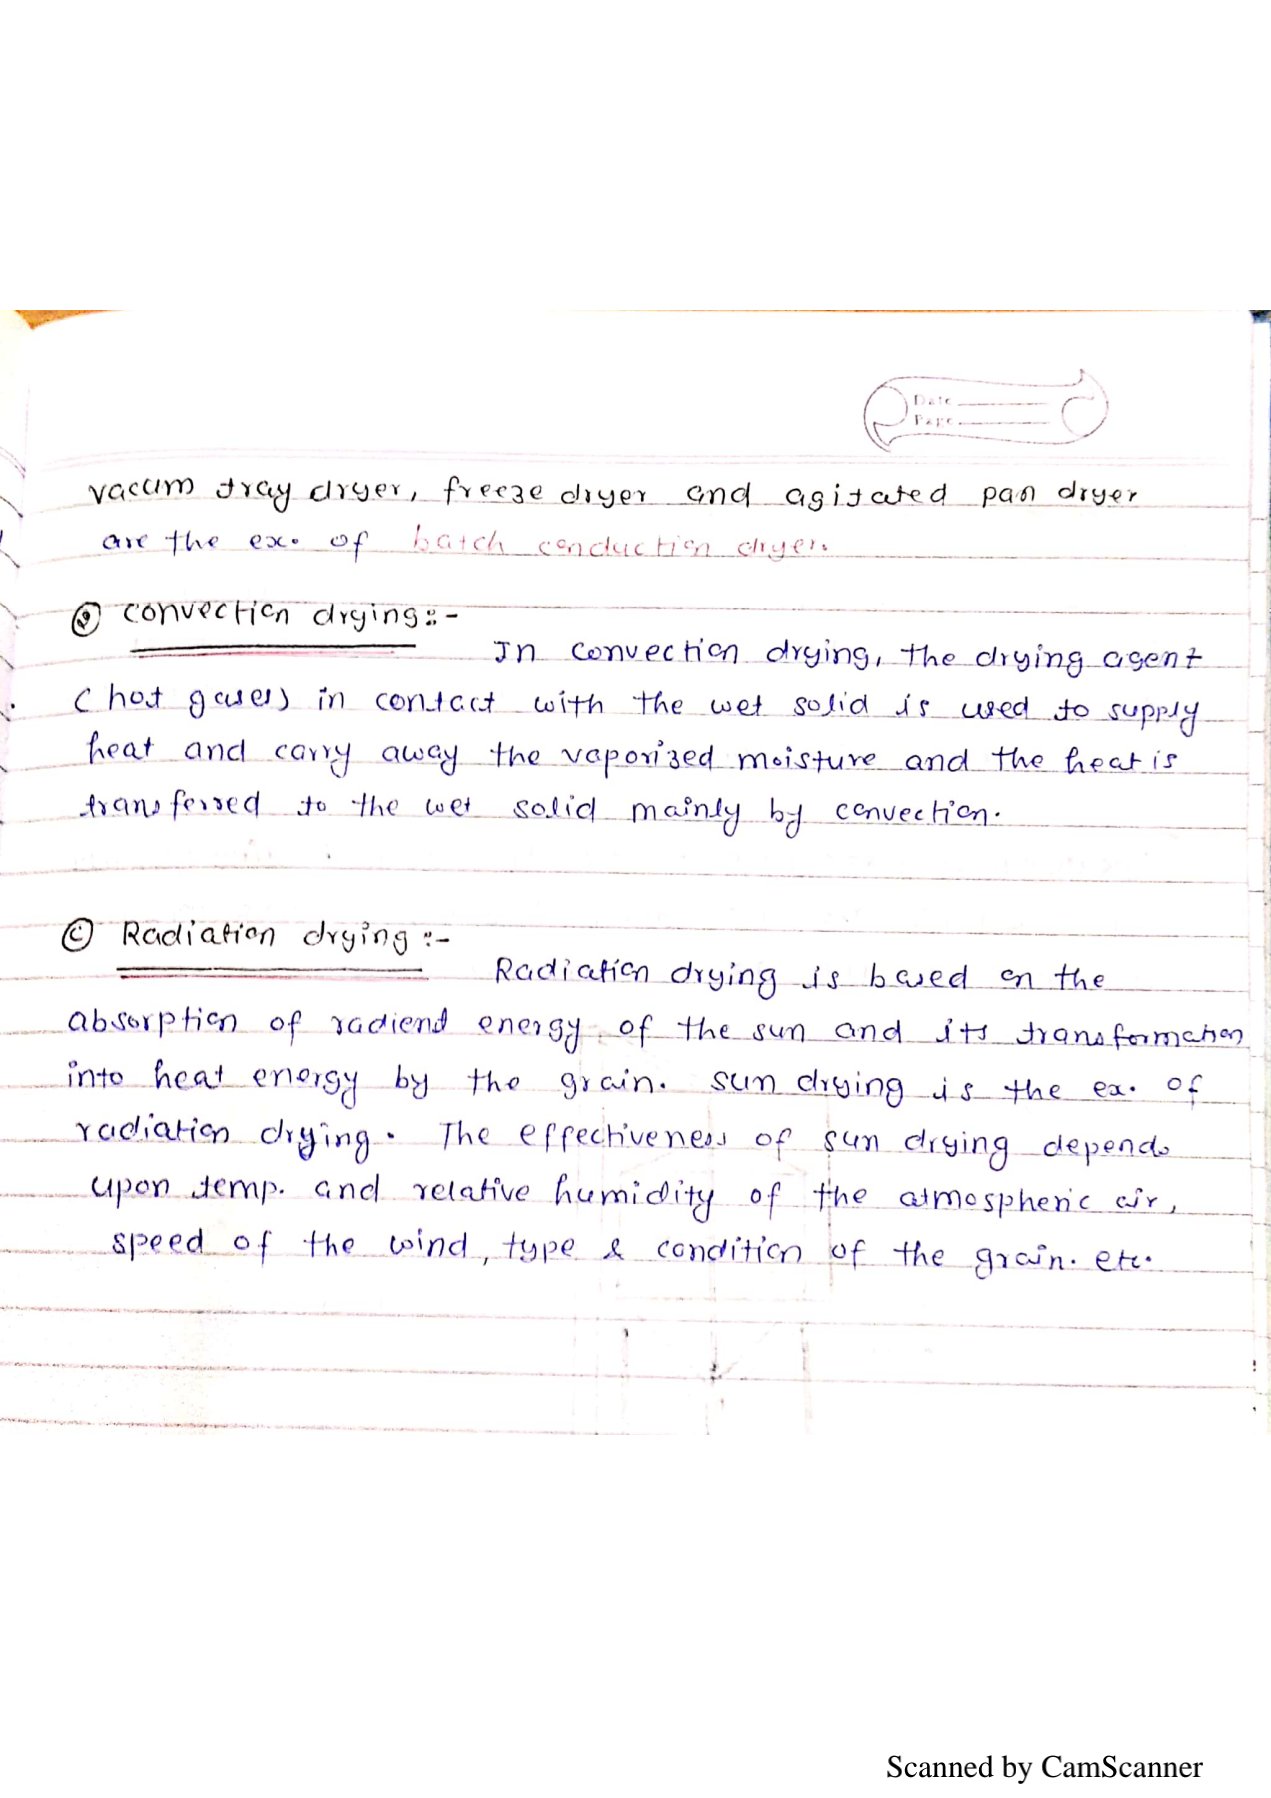 Date
Page
vacum tray dryer, freeze dryer and agitated pan dryer
are the ex. of batch conduction dryer.
convection drying::-
In convection drying, the drying agent
(hot gases) in contact with the wet solid is used to supply
heat and carry away the vaporized moisture and the heat is
transferred to the wet solid mainly by convection.
Ⓒ Radiation drying :-
Radiation drying is based on the
absorption of radiend energy of the sun and its transformation
into heat energy by the grain. sun drying is the ex. of
radiation drying. The effectiveness of sun drying depends
upon temp. and relative humidity of the atmospheric air,
speed of the wind, type & condition of the grain. etc.
Scanned by CamScanner